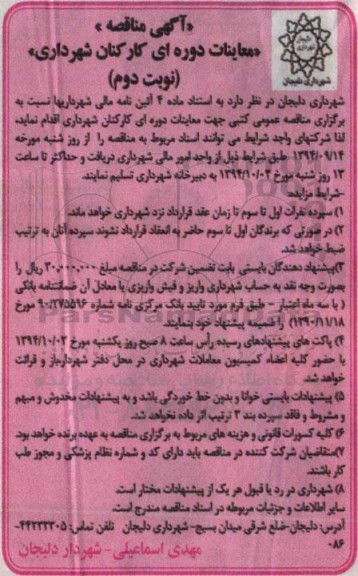 «آگهی مناقصه»
«معاینات دوره ای کارکنان شهرداری»
(نوبت دوم)
شهرداری دلیجان
شهرداری دلیجان در نظر دارد به استناد ماده ۴ آئین نامه مالی شهرداریها نسبت به
برگزاری مناقصه عمومی کتبی جهت معاینات دوره ای کارکنان شهرداری اقدام نماید،
لذا شرکتهای واجد شرایط می توانند اسناد مربوط به مناقصه را از روز شنبه مورخه
۱۳۹۴/۰۹/۱۴ طبق شرایط ذیل از واحد امور مالی شهرداری دریافت و حداکثر تا ساعت
۱۳ روز شنبه مورخ ۱۳۹۴/۱۰/۰۲ به دبیرخانه شهرداری تسلیم نمایند.
-شرایط مزایده:
۱) سپرده نفرات اول تا سوم تا زمان عقد قرارداد نزد شهرداری خواهد ماند.
۲) در صورتی که برندگان اول تا سوم حاضر به انعقاد قرارداد نشوند سپرده آنان به ترتیب
ضبط خواهد شد.
۳)پیشنهاد دهندگان بایستی بابت تضمین شرکت در مناقصه مبلغ ۳۰,۰۰۰,۰۰۰ ریال را
بصورت وجه نقد به حساب شهرداری واریز و فیش واریزی یا معادل آن ضمانتنامه بانکی
( با سه ماه اعتبار - طبق فرم مورد تایید بانک مرکزی نامه شماره ۹۰/۲۷۵۵۹۶ مورخ
۱۳۹۰/۱۱/۱۸) را ضمیمه پیشنهاد خود بنمایند.
۴) پاکت های پیشنهادهای رسیده رأس ساعت ۸ صبح روز یکشنبه مورخ ۱۳۹۴/۱۰/۰۳
با حضور کلیه اعضاء کمیسیون معاملات شهرداری در محل دفتر شهردار باز و قرائت
خواهد شد.
۵) پیشنهادات بایستی خوانا و بدون خط خوردگی باشد و به پیشنهادات مخدوش و مبهم
و مشروط و فاقد سپرده بند ۳ ترتیب اثر داده نخواهد شد.
۶) کلیه کسورات قانونی و هزینه های مربوط به برگزاری مناقصه به عهده برنده خواهد بود.
۷)متقاضیان شرکت کننده در مناقصه باید دارای کد و شماره نظام پزشکی و مجوز طب
کار باشند.
۸) شهرداری در رد یا قبول هر یک از پیشنهادات مختار است.
سایر اطلاعات و جزئیات مربوطه در اسناد مناقصه مندرج است.
آدرس: دلیجان-ضلع شرقی میدان بسیج- شهرداری دلیجان تلفن تماس: ۴۴۲۲۳۳۰۵-
۰۸۶
مهدی اسماعیلی - شهردار دلیجان